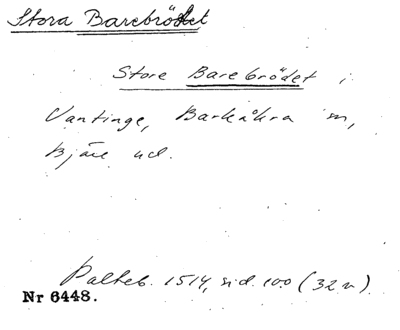 Stora Barebrödet
Store Barebrödet i
Vantinge, Barkåkra sn,
Bjäre hd.
Palteb. 1514, sid. 100 (32 v).
Nr 6448.